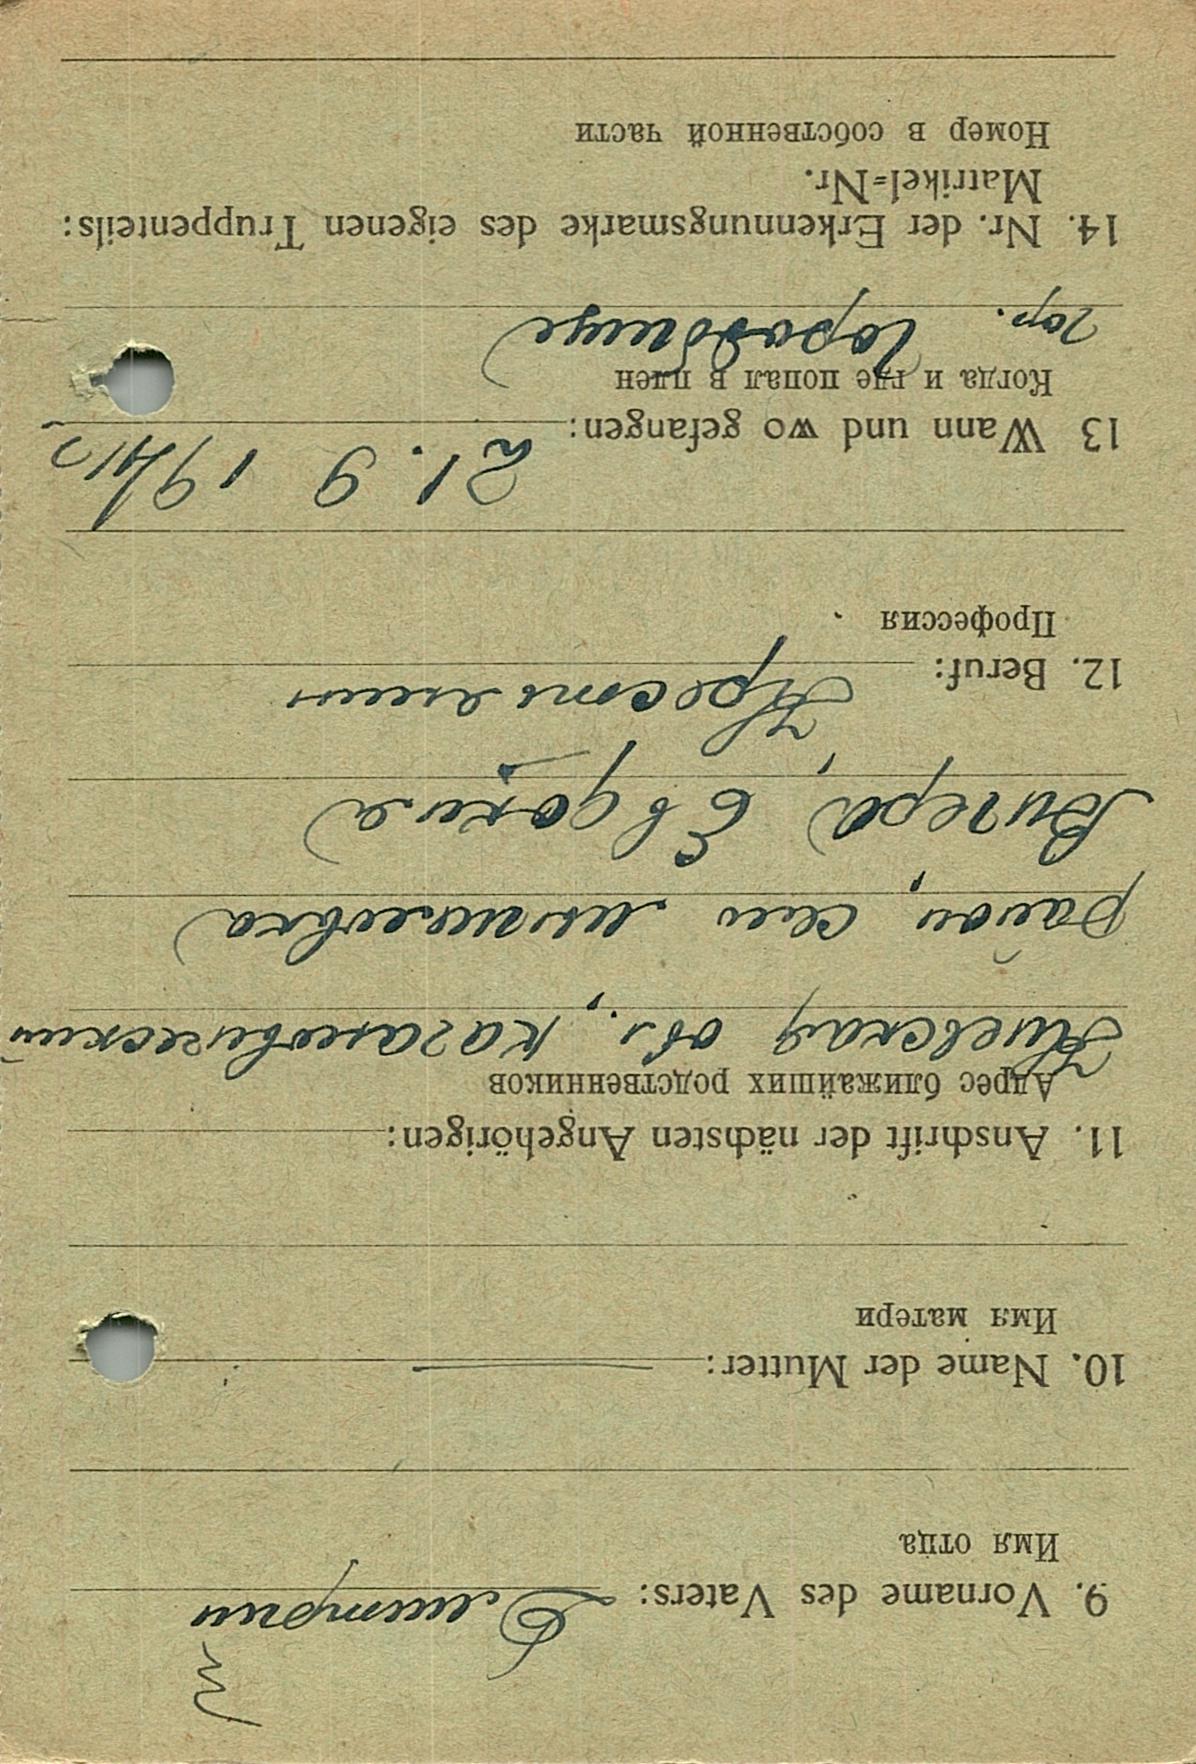 9. Vorname des Vaters: Дмитрий
Имя отца
10. Name der Mutter: —
Имя матери
11. Anschrift der nächsten Angehörigen:
Адрес ближайших родственников
Киевская обл., Кагановический
район, село
Вигера, Евдокия
12. Beruf: Крестьянин
Профессия
13 Wann und wo gefangen: 21. 9 1941
Когда и где попал в плен
гор. Городище
14. Nr. der Erkennungsmarke des eigenen Truppenteils:
Matrikel=Nr.
Номер в собственной части